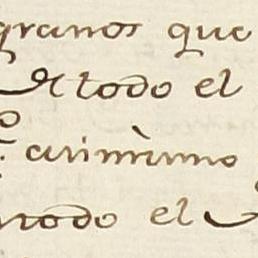 granos que
todo el
arimìmo
modo el